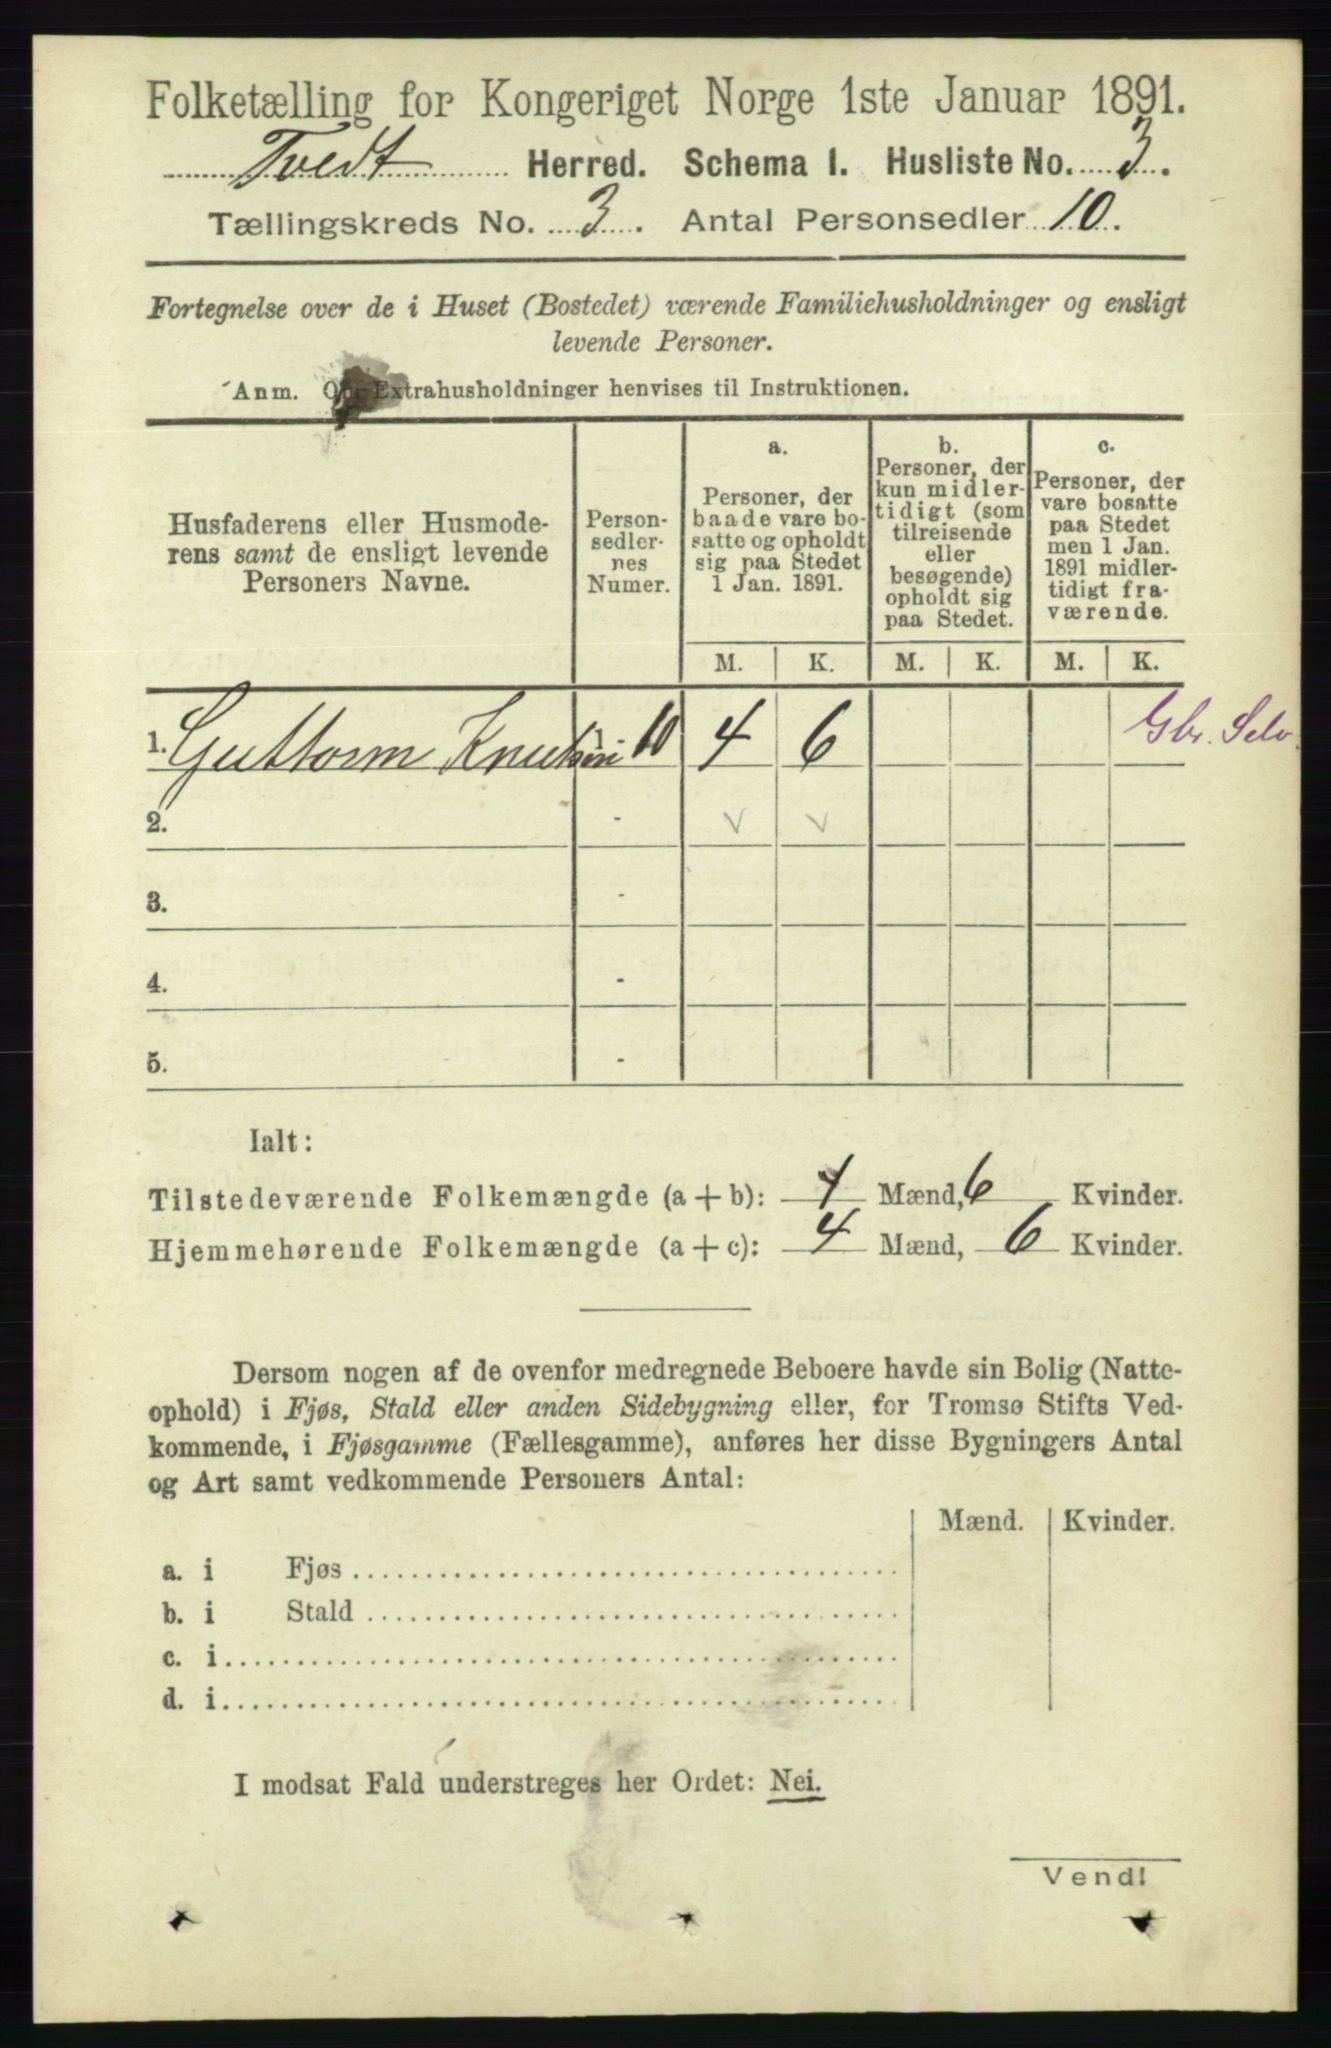 Folketælling for Kongeriget Norge 1ste Januar 1891.
Tvedt Herred. Schema 1. Husliste No. 3.
Tællingskreds No. 3. Antal Personsedler 10.
Fortegnelse over de i Huset (Bostedet) værende Familiehusholdninger og ensligt
levende Personer.
Anm. Om Extrahusholdninger henvises til Instruktionen.
Husfaderens eller Husmode-
rens samt de ensligt levende
Personers Navne.
Person-
sedler-
nes
Numer.
a.
Personer, der
baade vare bo-
satte og opholdt
sig paa Stedet
1 Jan. 1891.
b.
Personer, der
kun midler-
tidigt (som
tilreisende
eller
besøgende)
opholdt sig
paa Stedet.
c.
Personer, der
vare bosatte
paa Stedet
men 1 Jan.
1891 midler-
tidigt fra-
værende.
M. K. M. K. M. K.
1. Guttorm Knutsen 10 4 6 Gbr. Selv.
2. - v v
3. -
4. -
5. -
Ialt:
Tilstedeværende Folkemængde (a + b): 4 Mænd, 6 Kvinder.
Hjemmehørende Folkemængde (a + c): 4 Mænd, 6 Kvinder.
Dersom nogen af de ovenfor medregnede Beboere havde sin Bolig (Natte-
ophold) i Fjøs, Stald eller anden Sidebygning eller, for Tromsø Stifts Ved-
kommende, i Fjøsgamme (Fællesgamme), anføres her disse Bygningers Antal
og Art samt vedkommende Personers Antal:
Mænd. Kvinder.
a. i Fjøs
b. i Stald
c. i
d. i
I modsat Fald understreges her Ordet: Nei.
Vend!